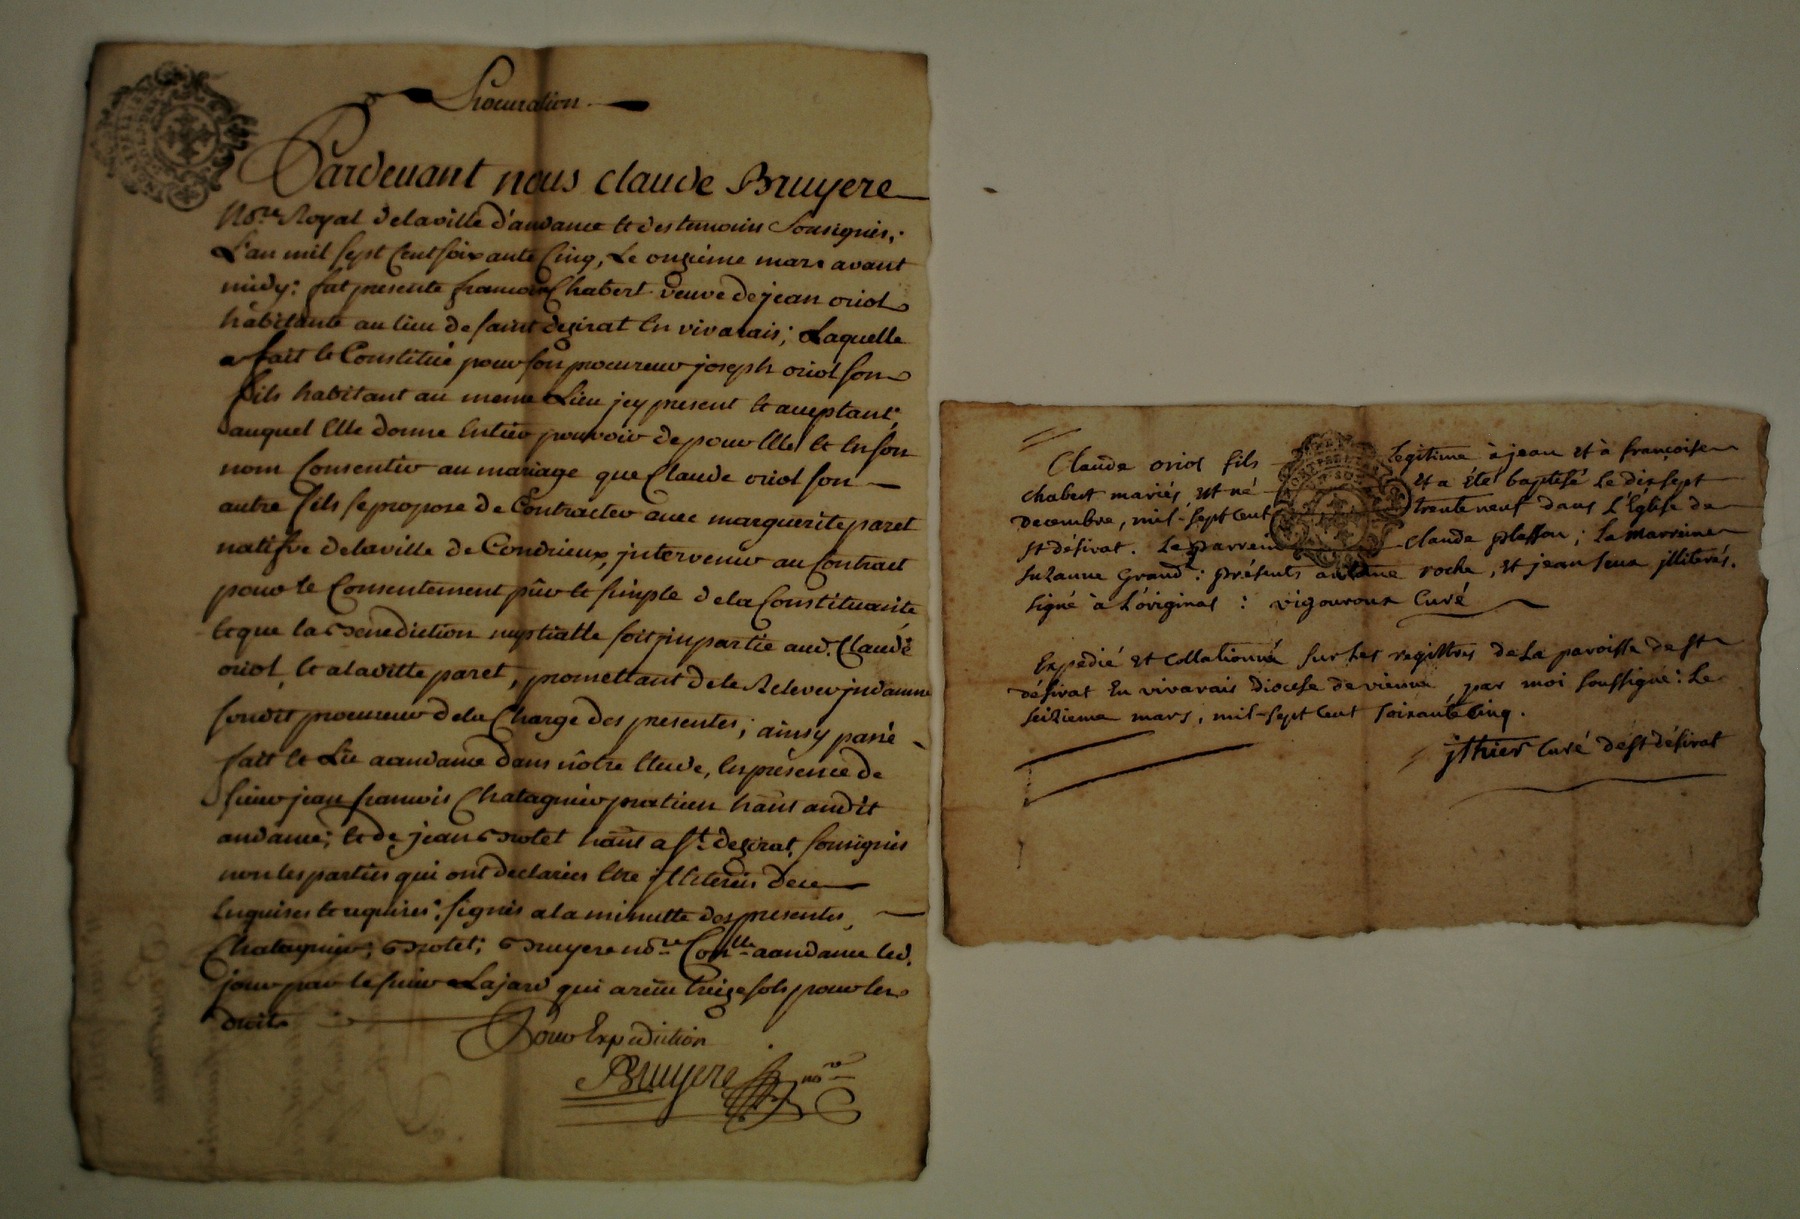 Procuration
Pardevant nous claude Bruyere
No.re Royal delaville d'andance et des temoins Sousignés;
L'an mil sept Cent soixante Cinq, Le onzieme mars avant
midy: fut presente francoise Chabert veuve de jean oriol
habitante au lieu de saint dezirat En vivarais; Laquelle
a fait et Constitué pour son procureur joseph oriol son
fils habitant au meme Lieu jcy present et aceptant,
auquel Elle donne Entier pouvoir de pour Elle et En son
nom Consentir au mariage que Claude oriol son
autre fils se propose de Contracter avec marguerite paret
natifve delaville de Condrieux, jntervenir au Contract
pour le Consentement pûr et simple de la Constituante
et que la Benediction nuptialle soit jmpartie aud. Claude
oriol, et a laditte paret, promettant de le Relever jndamne
sondit procureur de la Charge des presentes; ainsy passé
fait et Lû a andance dans nôtre Etude, En présence de
sieur jean francois Chatagnier praticien hant audit
andance; et de jean Brolet hant a St. dezirat, sousignés
non les parties qui ont declarées Etre jlliterées de ce
Enquises et requises. signés a la minutte des presentes,
Chatagnier; Brolet; Bruyere no.re Con.lle a andance led.
jour par le sieur Lajard qui a recu treize sols pour les
droits
Pour Expedition
Bruyere no.re
Claude oriol fils legitime à jean et à françoise
chabert mariés, est né et a été baptisé Le dixsept
decembre, mil-sept cent trente neuf dans L'Eglise de
st désirat. Le parrein Claude plasson; La marreine
suzanne Grand: présents antoine roche, et jean seux jlliterés.
signé à L'original: vigouroux Curé
Expedié et Collationné sur Les registres de La paroisse de st
désirat En vivarais Diocèse de vienne, par moi soussigné: Le
seizieme mars, mil-sept cent soixante cinq.
jthier Curé de st désirat